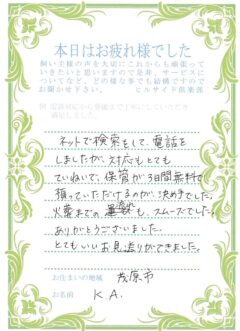 本日はお疲れ様でした
飼い主様の声を大切にこれからも頑張って
いきたいと思いますので是非、サービスに
ついてなど、どの様な事でも結構ですので
お聞かせ下さい。 ヒルサイド倶楽部
例 電話対応から骨壷まで丁寧にしていただき
満足しました。
ネットで検索をして、電話を
しましたが、対応もとても
ていねいで、保管が3日間無料で
預っていただけるのが、決め手でした。
火葬までの流れも、スムーズでした。
ありがとうございました。
とてもいいお見送りができました。
お住まいの地域 茂原市
お名前 K.A.